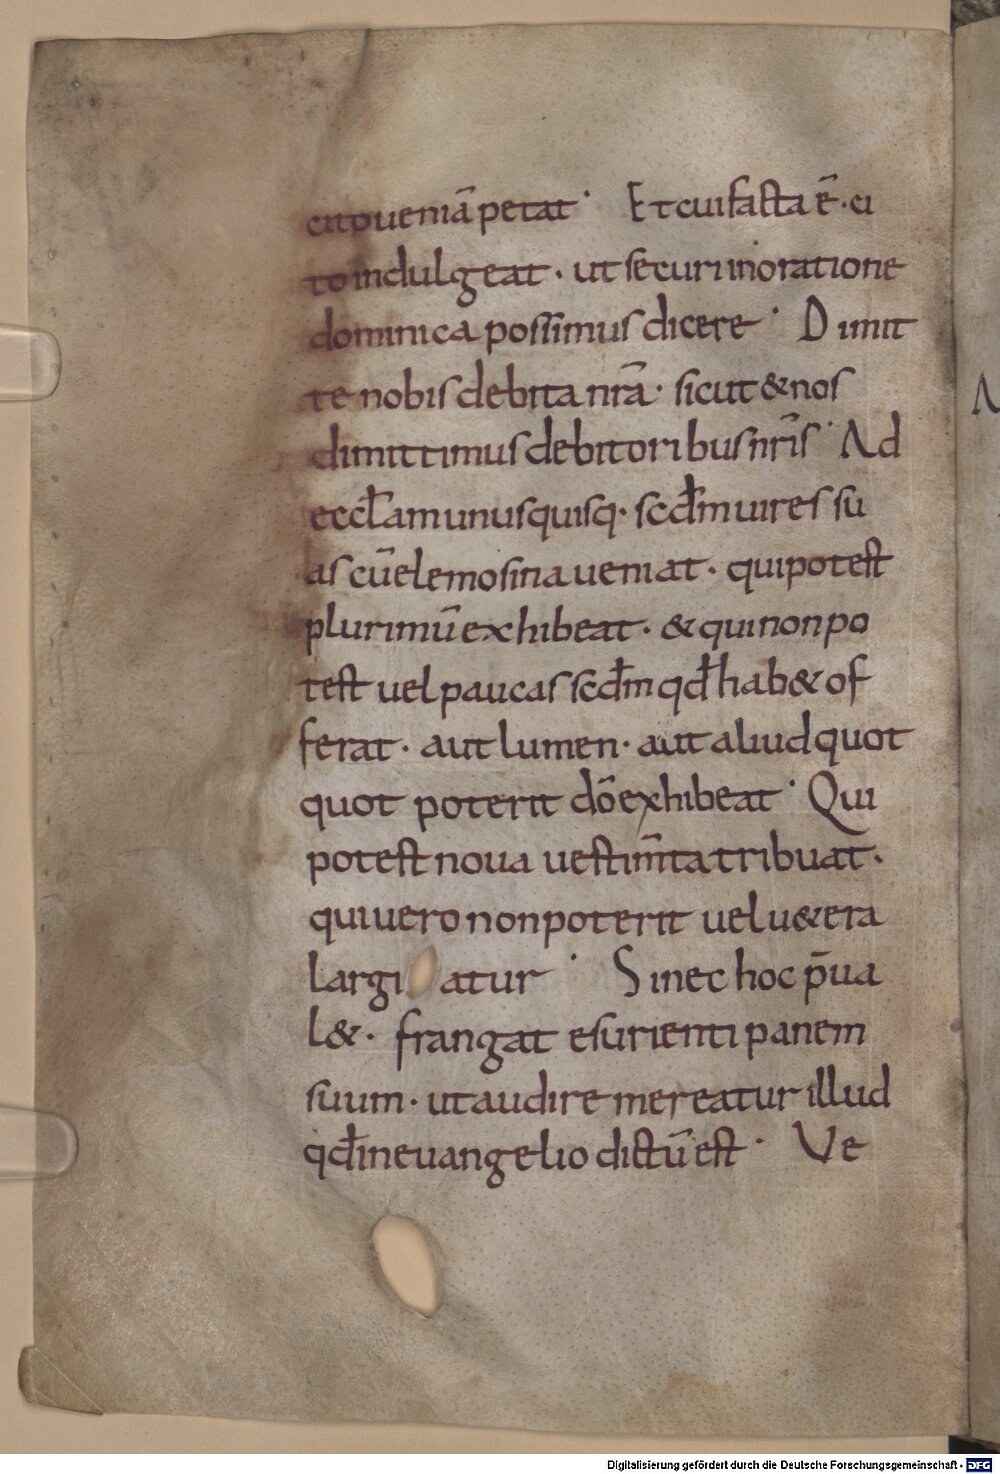 cito ueniā petat · Et cui facta ē · ci
to indulgeat · ut securi in oratione
dominica possimus dicere · Dimit
te nobis debita nrā · sicut & nos
dimittimus debitoribus nrīs · Ad
eccłam unusquisq· scdm uires su
as cū elemosina ueniat · qui potest
plurimū exhibeat · & qui non po
test uel paucas scdm qđ hab& of
ferat · aut lumen · aut aliud quot
quot poterit dō exhibeat · Qui
potest noua uestim̄ta tribuat ·
qui uero non poterit uel u&era
largiatur · Si nec hoc p̄ua
l& · frangat esurienti panem
suum · ut audire mereatur illud
qđ in euangelio dictū est · Ve
Digitalisierung gefördert durch die Deutsche Forschungsgemeinschaft - DFG